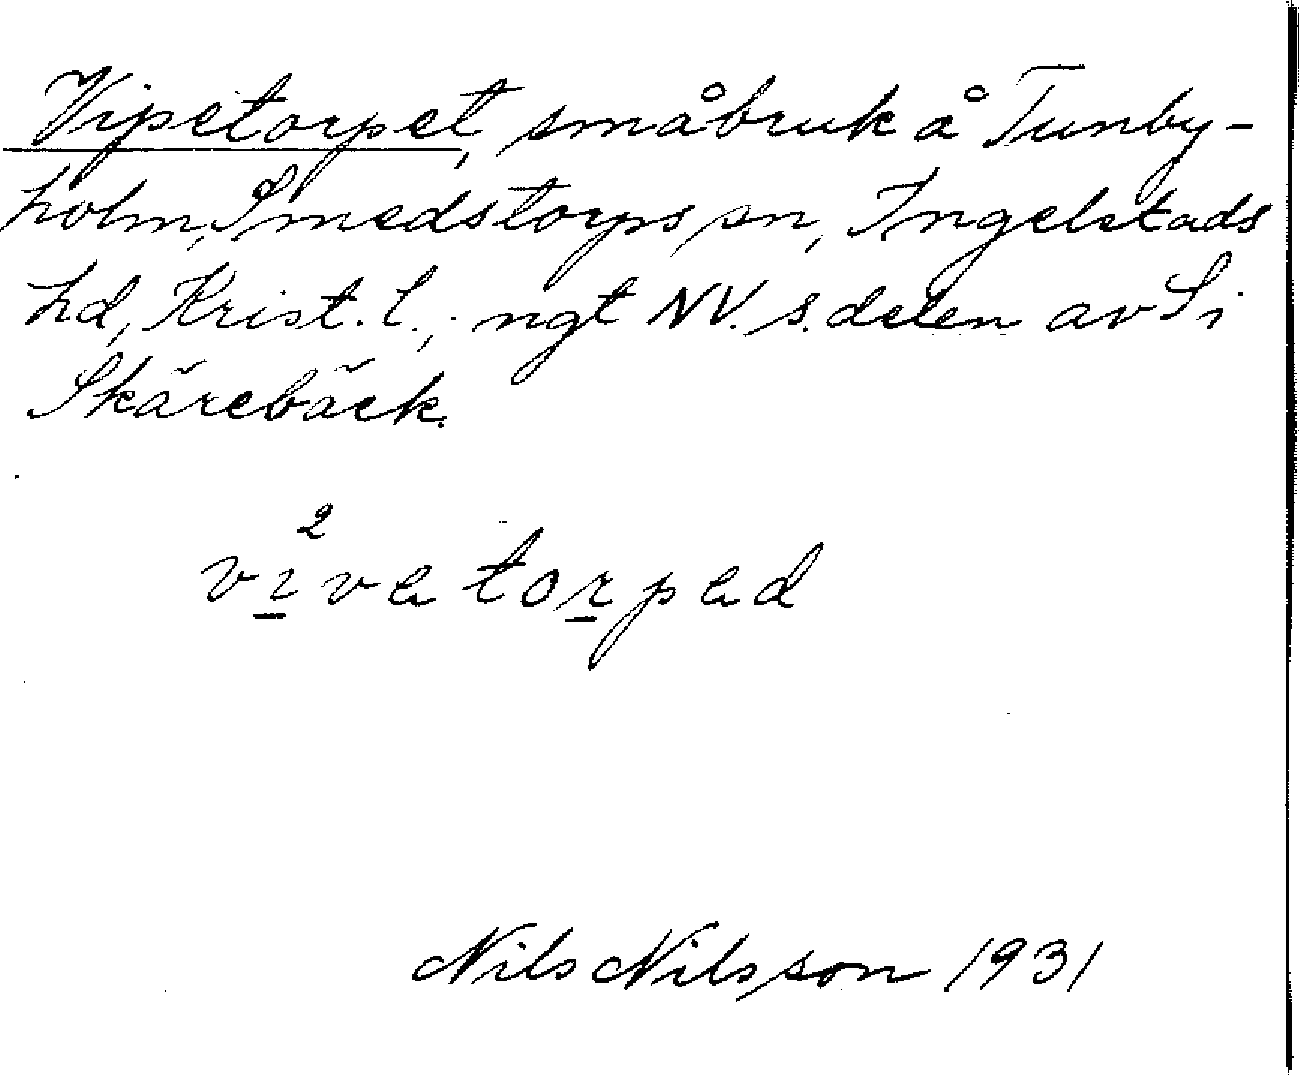 Vipetorpet, småbruk å Tunby-
holm, Smedstorps sn, Ingelstads
hd, Krist. l., ngt NV. s. delen av S i
Skärebäck.
2
vıva torpad
Nils Nilsson 1931